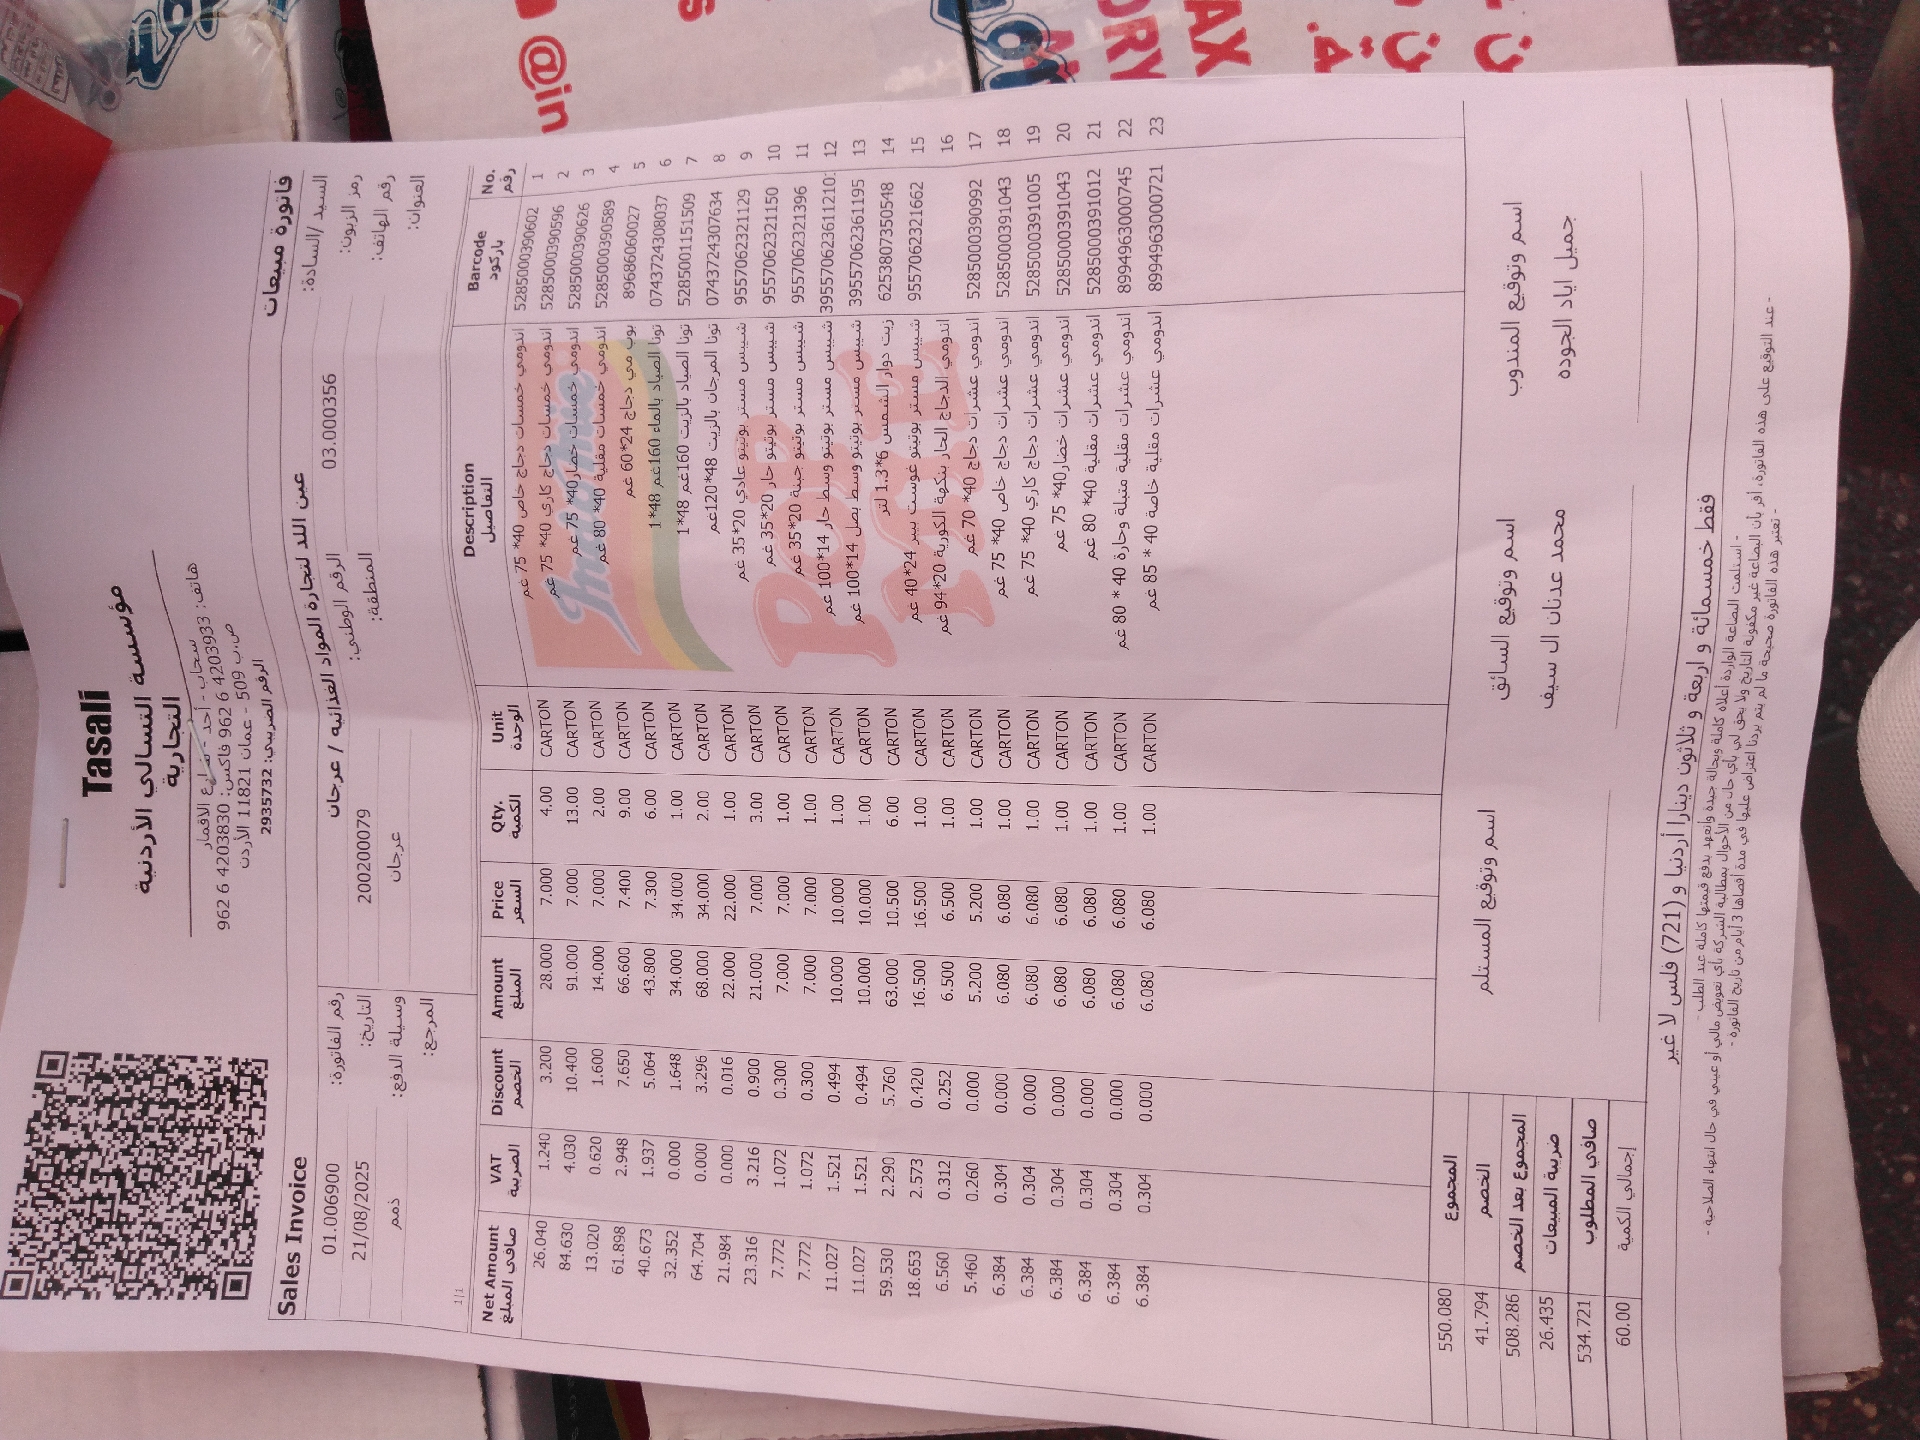 Tasali
مؤسسة التسالي الأردنية
التجارية
سحاب - أحد - شارع الاقمار
هاتف: 4203933 6 962 فاكس: 4203830 6 962
ص.ب 509 - عمان 11821 الأردن
الرقم الضريبي: 2935732
Sales Invoice فاتورة مبيعات
السيد /السادة: عين اللد لتجارة المواد الغذائيه / عرجان رقم الفاتورة: 01.006900
رمز الزبون: 03.000356 الرقم الوطني: 200200079 التاريخ: 21/08/2025
رقم الهاتف: المنطقة: عرجان وسيلة الدفع: ذمم
العنوان: المرجع:
1/1
Net Amount VAT Discount Amount Price Qty. Unit Description Barcode No.
صافي المبلغ الضريبة الخصم المبلغ السعر الكمية الوحدة التفاصيل باركود رقم
26.040 1.240 3.200 28.000 7.000 4.00 CARTON اندومي خمسات دجاج خاص 40* 75 غم 528500390602 1
84.630 4.030 10.400 91.000 7.000 13.00 CARTON اندومي خمسات دجاج كاري 40* 75 غم 5285000390596 2
13.020 0.620 1.600 14.000 7.000 2.00 CARTON اندومي خمسات خضار40* 75 غم 5285000390626 3
61.898 2.948 7.650 66.600 7.400 9.00 CARTON اندومي خمسات مقلية 40* 80 غم 5285000390589 4
40.673 1.937 5.064 43.800 7.300 6.00 CARTON بوب مي دجاج 24*60 غم 8968606 0027 5
32.352 0.000 1.648 34.000 34.000 1.00 CARTON تونا الصياد بالماء 160غم 48*1 074372430 8037 6
64.704 0.000 3.296 68.000 34.000 2.00 CARTON تونا الصياد بالزيت 160غم 48*1 5285001151509 7
21.984 0.000 0.016 22.000 22.000 1.00 CARTON تونا المرجان بالزيت 48*120غم 074372430 7634 8
23.316 3.216 0.900 21.000 7.000 3.00 CARTON شيبس مستر بوتيتو عادي 20*35 غم 9557062321129 9
7.772 1.072 0.300 7.000 7.000 1.00 CARTON شيبس مستر بوتيتو حار 20*35 غم 9557062321150 10
7.772 1.072 0.300 7.000 7.000 1.00 CARTON شيبس مستر بوتيتو جبنة 20*35 غم 9557062321396 11
11.027 1.521 0.494 10.000 10.000 1.00 CARTON شيبس مستر بوتيتو وسط حار 14*100 غم 12
11.027 1.521 0.494 10.000 10.000 1.00 CARTON شيبس مستر بوتيتو وسط بصل 14*100 غم 3955706236 1195 13
59.530 2.290 5.760 63.000 10.500 6.00 CARTON زيت دوار الشمس 6*1.3 لتر 6253807350548 14
18.653 2.573 0.420 16.500 16.500 1.00 CARTON شيبس مستر بوتيتو غوست بيبر 24*40 غم 9557062321662 15
6.560 0.312 0.252 6.500 6.500 1.00 CARTON اندومي الدجاج الحار بنكهة الكورية 20*94 غم 16
5.460 0.260 0.000 5.200 5.200 1.00 CARTON اندومي عشرات دجاج 40* 70 غم 5285000390992 17
6.384 0.304 0.000 6.080 6.080 1.00 CARTON اندومي عشرات دجاج خاص 40* 75 غم 5285000391043 18
6.384 0.304 0.000 6.080 6.080 1.00 CARTON اندومي عشرات دجاج كاري 40* 75 غم 5285000391005 19
6.384 0.304 0.000 6.080 6.080 1.00 CARTON اندومي عشرات خضار40* 75 غم 5285000391043 20
6.384 0.304 0.000 6.080 6.080 1.00 CARTON اندومي عشرات مقلية 40* 80 غم 5285000391012 21
6.384 0.304 0.000 6.080 6.080 1.00 CARTON اندومي عشرات مقلية متبلة وحارة 40 * 80 غم 8994963000745 22
6.384 0.304 0.000 6.080 6.080 1.00 CARTON اندومي عشرات مقلية خاصة 40 * 85 غم 8994963000721 23
Indomie
POP
MIE
المجموع 550.080
الخصم 41.794
المجموع بعد الخصم 508.286
ضريبة المبيعات 26.435
صافي المطلوب 534.721
إجمالي الكمية 60.00
اسم وتوقيع المندوب اسم وتوقيع السائق اسم وتوقيع المستلم
جميل اياد الجوده محمد عدنان ال سيف
فقط خمسمائة و اربعة و ثلاثون دينارا أردنيا و (721) فلس لا غير
- استلمت البضاعة الواردة أعلاه كاملة وبحالة جيدة وأتعهد بدفع قيمتها كاملة عند الطلب -
- عند التوقيع على هذه الفاتورة، أقر بأن البضاعة غير مكفولة التاريخ ولا يحق لي بأي حال من الأحوال بمطالبة الشركة بأي تعويض مالي أو عيني في حال انتهاء الصلاحية -
- تعتبر هذه الفاتورة صحيحة ما لم يتم يردنا اعتراض عليها في مدة أقصاها 3 أيام من تاريخ الفاتورة -
@in
ORY
AX